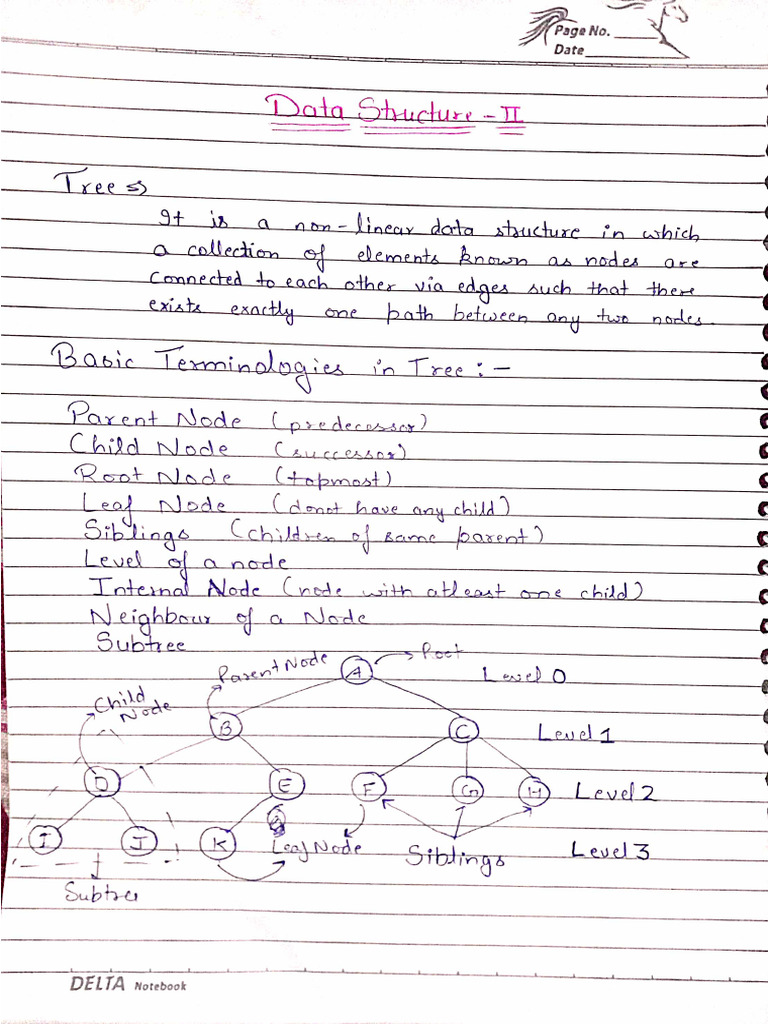 Page No.
Date
Data Structure - II
Tree ⇒
It is a non-linear data structure in which
a collection of elements known as nodes are
connected to each other via edges such that there
exists exactly one path between any two nodes.
Basic Terminologies in Tree :-
Parent Node (predecessor)
Child Node (successor)
Root Node (topmost)
Leaf Node (donot have any child)
Siblings (children of same parent)
Level of a node
Internal Node (node with atleast one child)
Neighbour of a Node
Subtree
Parent Node A Root Level 0
Child Node B C Level 1
D E F G H Level 2
I J K Leaf Node Siblings Level 3
Subtree
DELTA Notebook